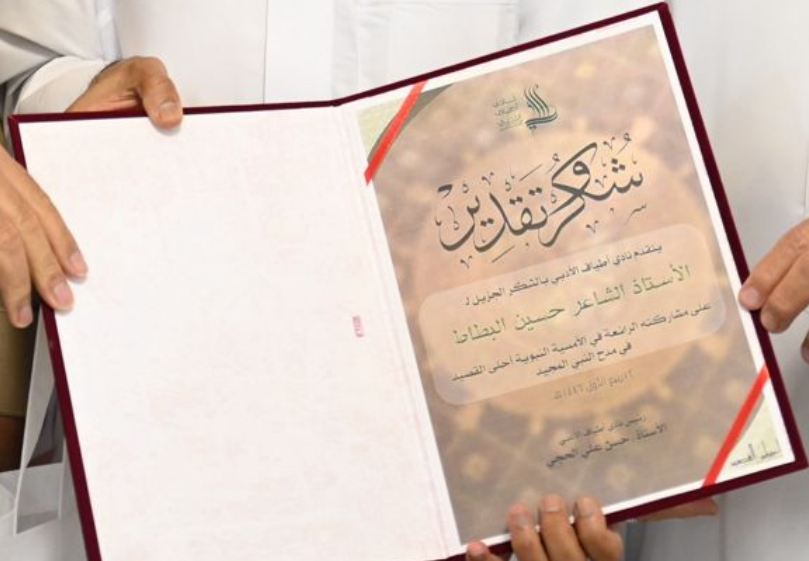 شكر وتقدير
يتقدم نادي أطياف الأدبي بالشكر الجزيل لـ
الأستاذ الشاعر حسين البطاط
على مشاركته الرائعة في الأمسية النبوية أحلى القصيد
في مدح النبي المجيد
ربيع الأول ١٤٤٦هـ
رئيس نادي أطياف الأدبي
الأستاذ . حسن علي الحجي